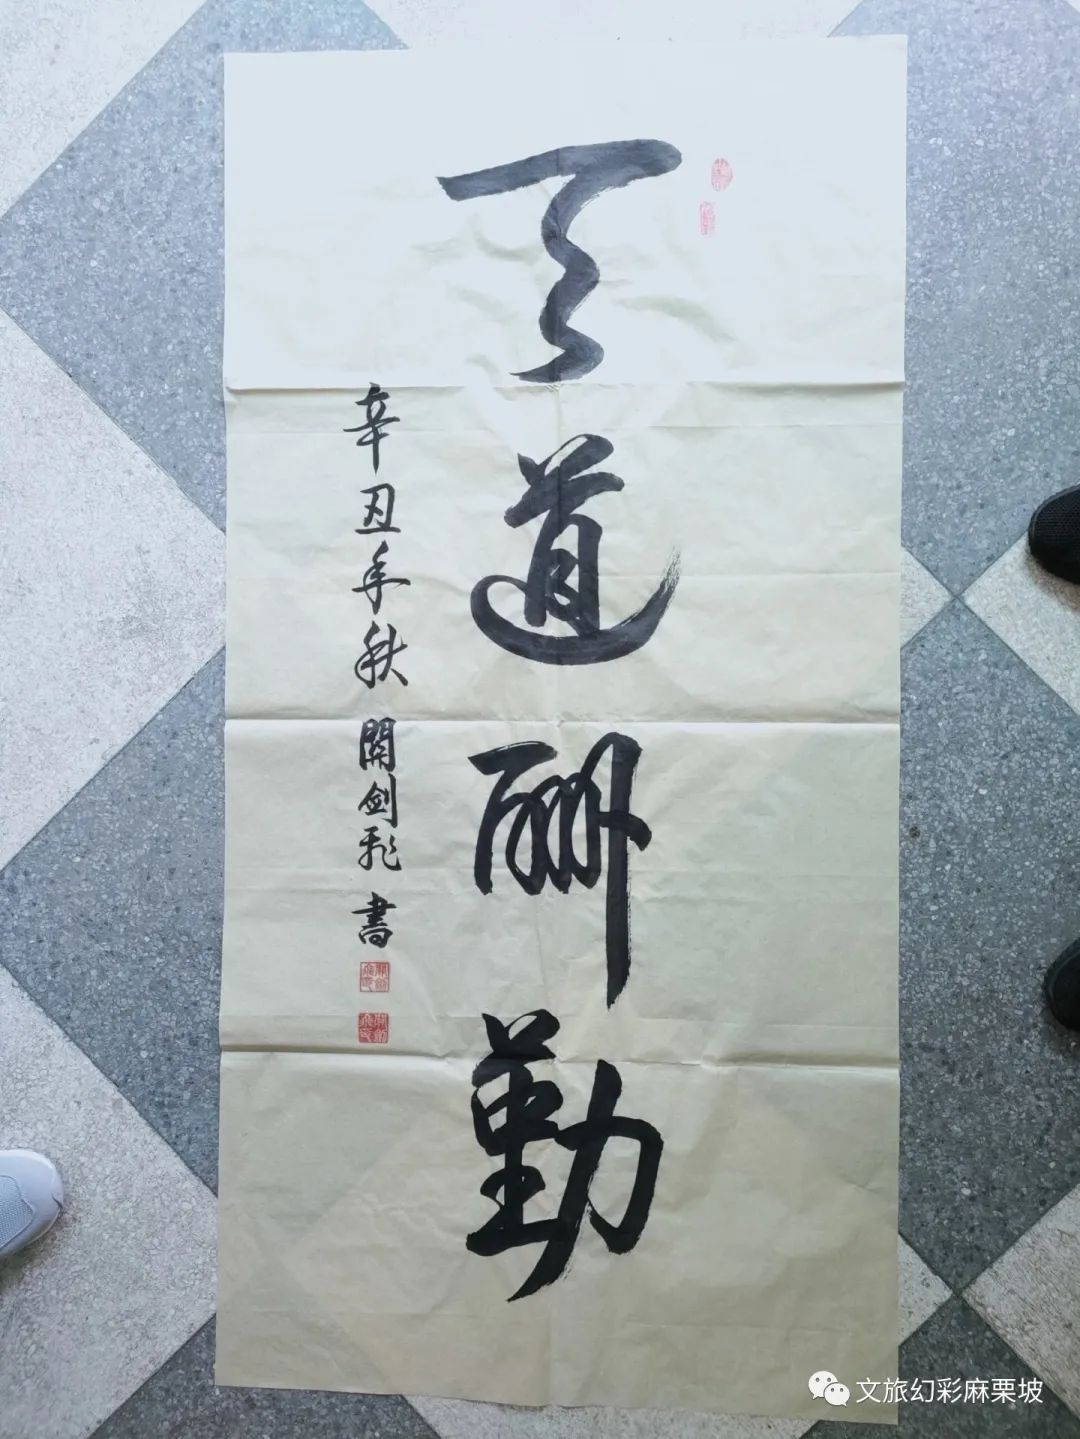 天道酬勤
辛丑年秋關劍飛書
文旅幻彩麻栗坡